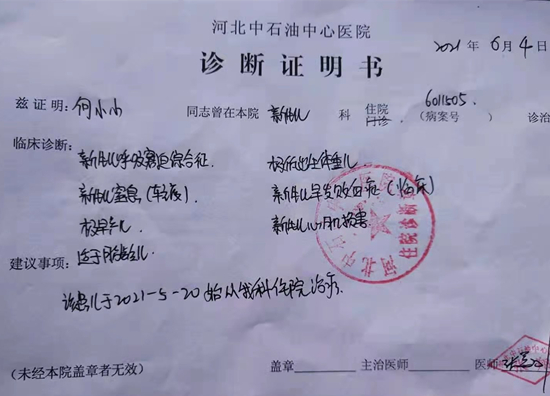 河北中石油中心医院
2021年6月4日
诊断证明书
兹证明：何小小 同志曾在本院 新生儿 科 住院 门诊 (病案号 6011505. ) 诊治
临床诊断：
新生儿呼吸窘迫综合征 极低出生体重儿
新生儿窒息（轻度） 新生儿早发败血症（临床）
极早产儿 新生儿心肌损害
适于胎龄儿
建议事项：
该患儿于2021-5-20始从我科住院治疗.
(未经本院盖章者无效) 盖章 主治医师 医师